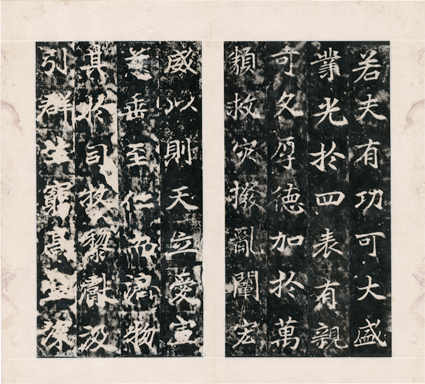 若夫有功可大盛
業光於四表有親
可久厚德加於萬
類救災攘亂闡宏
威以則天立愛宣
慈
垂至仁而濟物
其於司牧黎獻
引群生